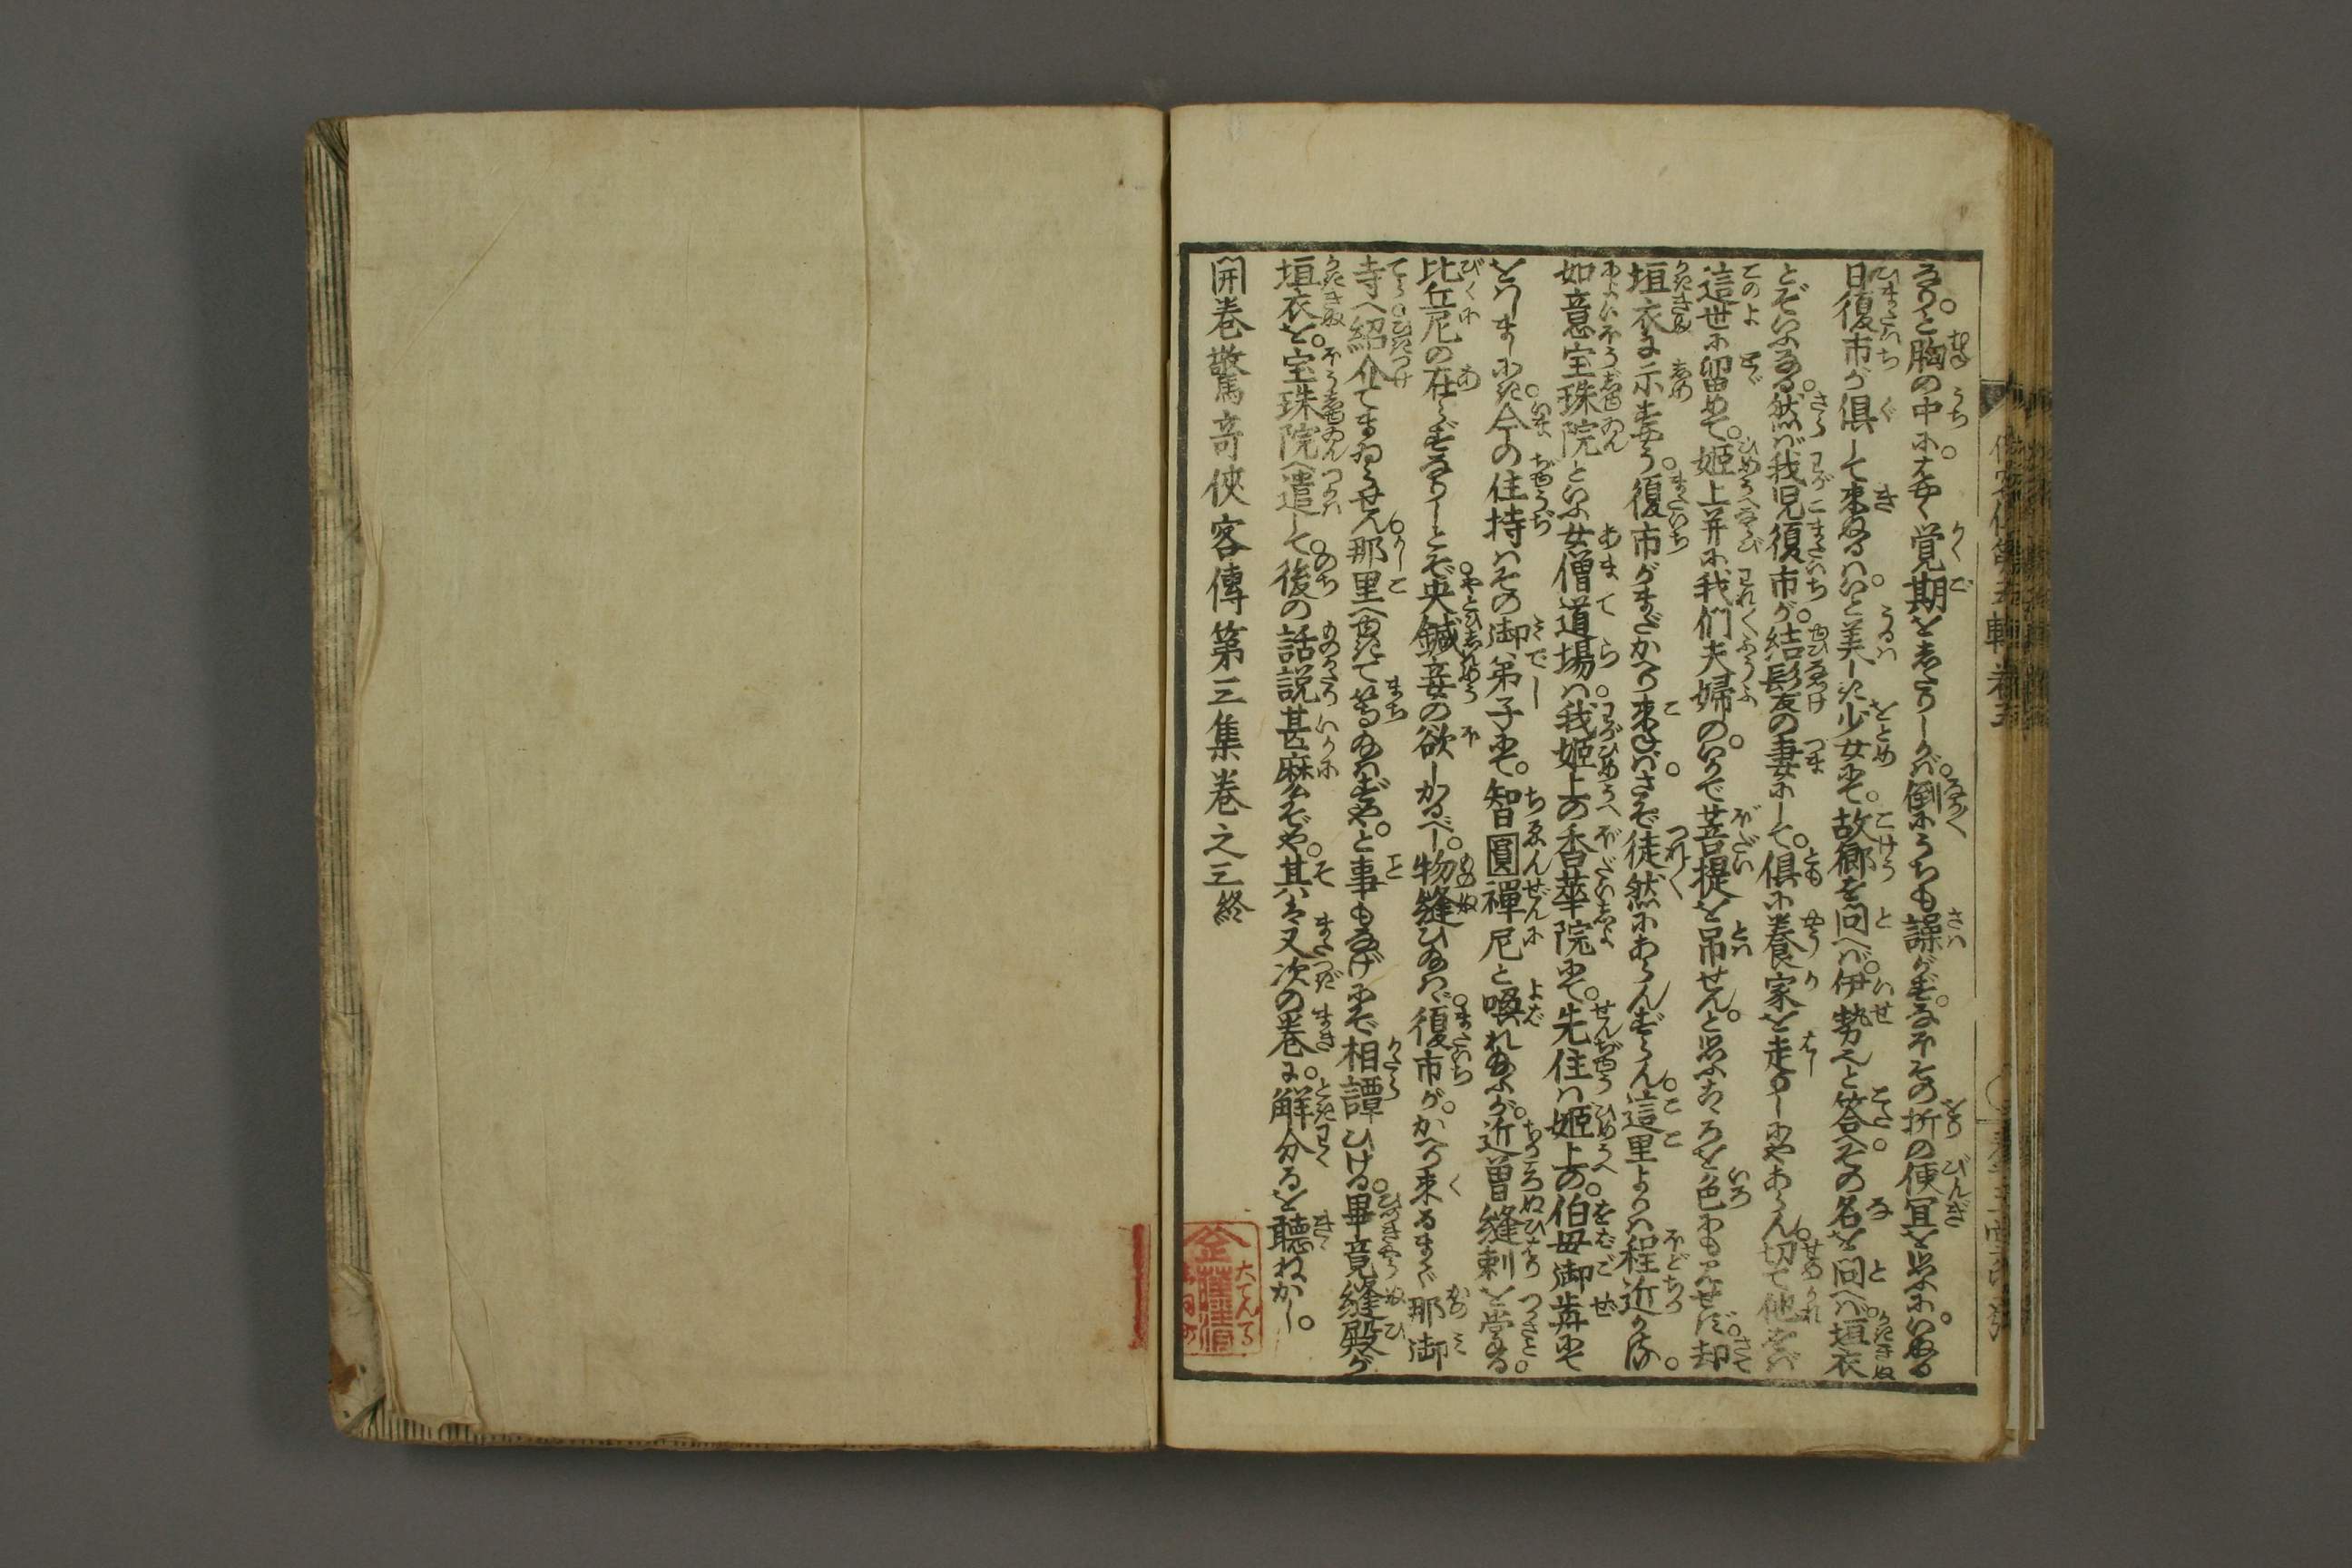 なりと胸の中にはやく覚期をしたりしかば倒にうちも譟がずなほその折の便宜を思ふにいぬる
日復市が倶して來ぬるはいと美しき少女にて故郷を問へば伊勢と答へその名を問へば垣衣
とぞいふなる然らば我児復市が結髪の妻にして倶に養家を走りしにやあらん切て他をば
這世に留めて姫上并に我們夫婦のいかで菩提を吊せんと思ふこゝろを色にも見せず却
垣衣に示すやう復市がまだかへり來ねばさぞ徒然にあらんずらん這里よりは程近かる
如意宝珠院といふ女僧道場は我姫上の香華院にて先住は姫上の伯母御前にて
をはしましにき今の住持はその御弟子にて智圓禪尼と喚れ給ふが近曽縫刺を学べる
比丘尼の在らずなりしとて央鍼妾の欲しかるべし物縫ひ給はゞ復市がかへり来るまで那御
寺へ紹介てまゐらせん那里へゆきて等給はずやと事もなげにぞ相譚ひける畢竟縫殿が
垣衣を宝珠院へ遣して後の話説甚麼ぞや其は又次の巻に解分るを聴ねかし
開巻驚竒俠客傳第三集巻之三終